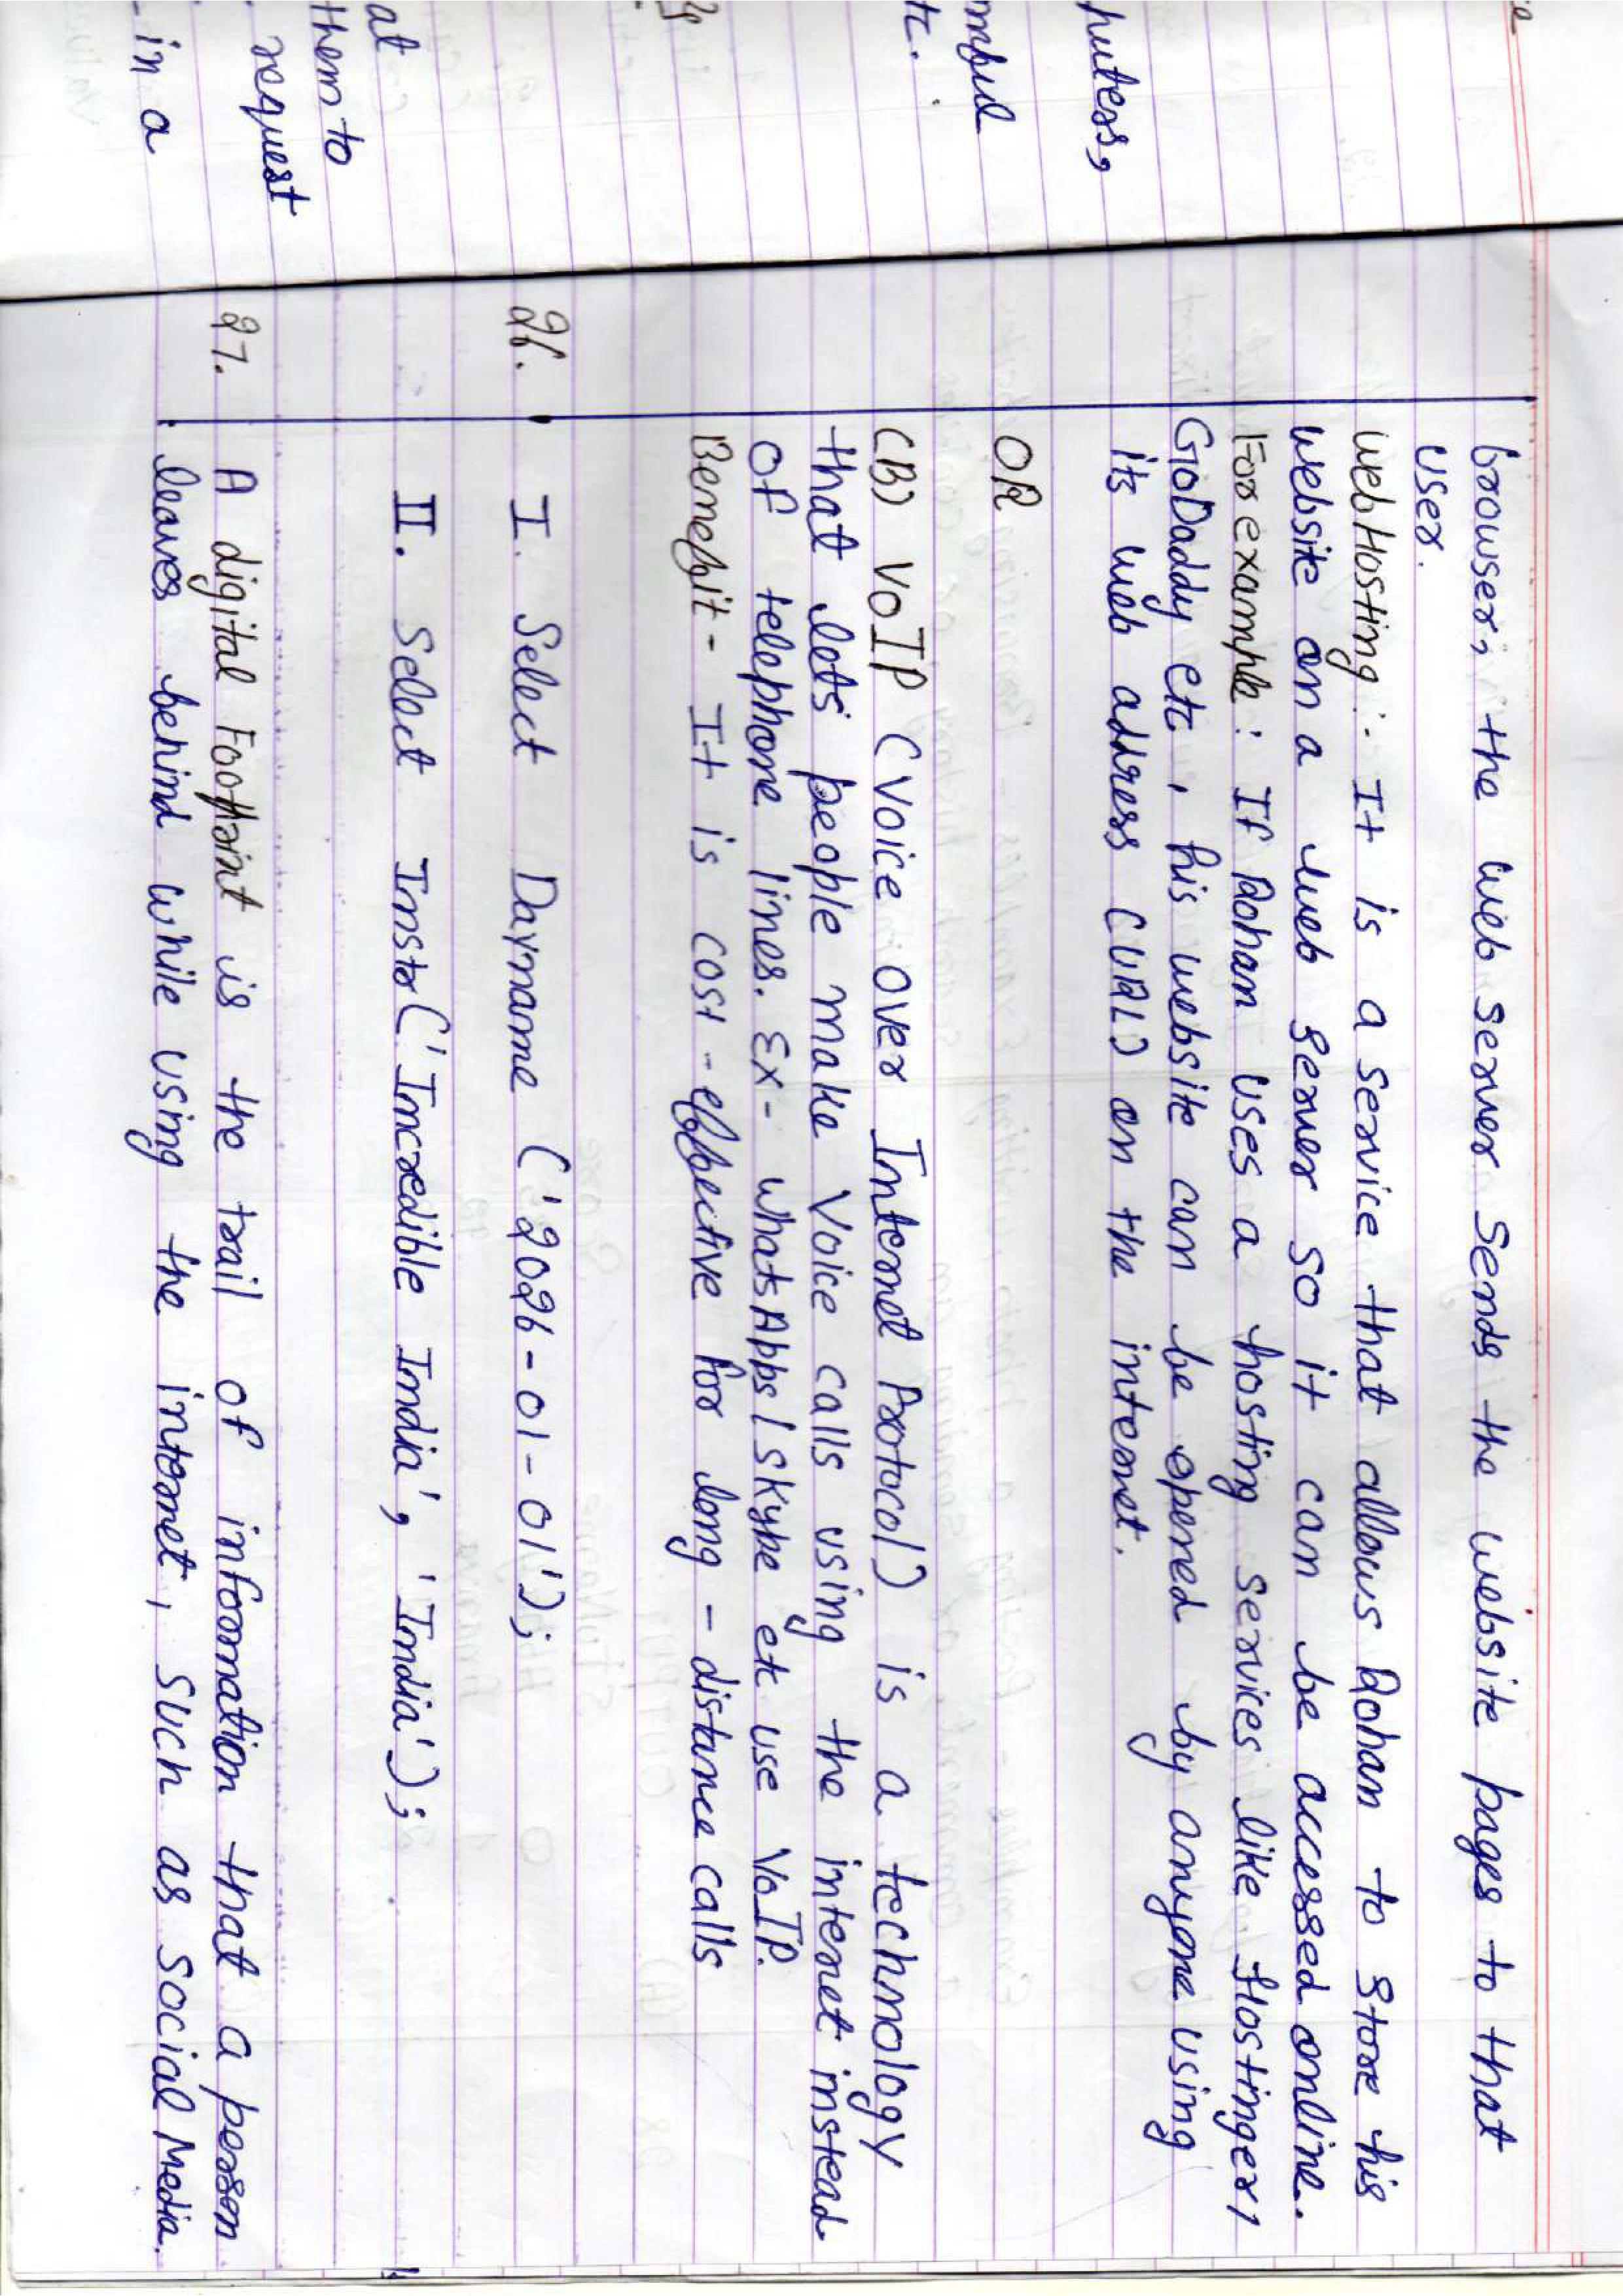 browser, the web server sends the website pages to that
user.
Web Hosting :- It is a service that allows Rohan to store his
website on a web server so it can be accessed online.
For example : If Rohan uses a hosting services like Hostinger,
GoDaddy etc , his website can be opened by anyone using
its web address (URL) on the internet.
OR
(B) VoIP (Voice over Internet Protocol) is a technology
that lets people make voice calls using the internet instead
of telephone lines. Ex- WhatsApps / Skype etc use VoIP.
Benefit - It is cost-effective for long - distance calls
26. I. Select Dayname ('2026-01-01');
II. Select Instr('Incredible India', 'India');
27. A digital Footprint is the trail of information that a person
leaves behind while using the internet, such as social Media.
puters,
mful
tc.
at
them to
request
in a